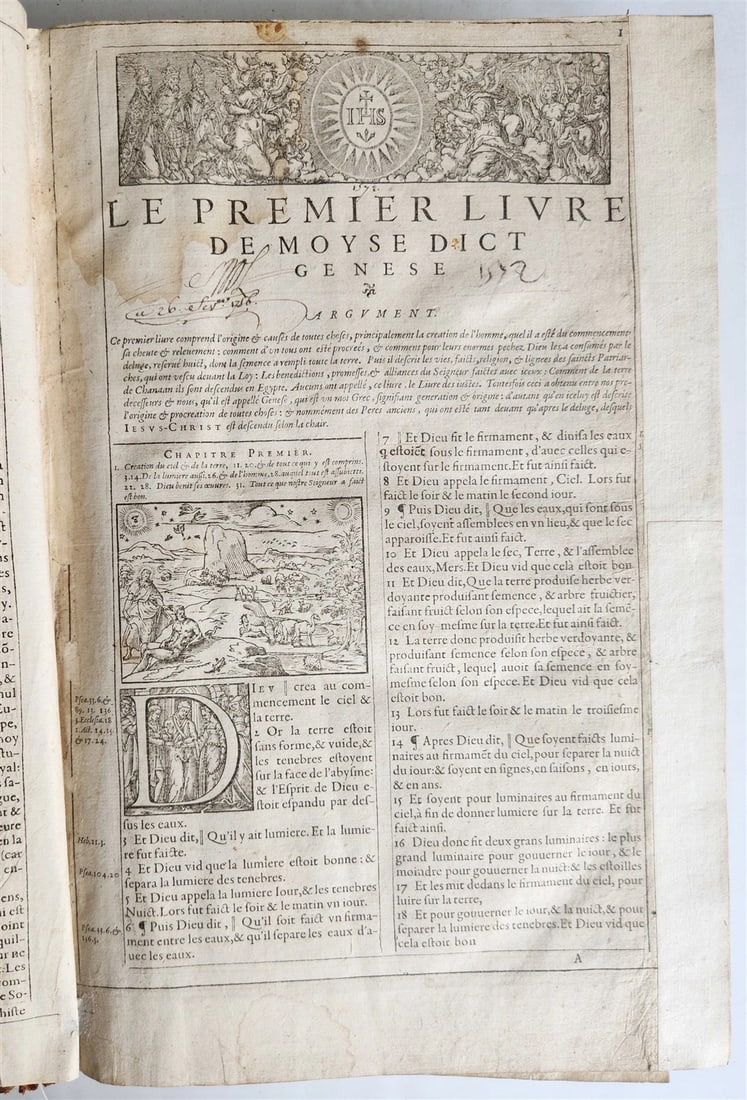 1
IHS
1572.
LE PREMIER LIVRE
DE MOYSE DICT
GENESE
1572
ARGVMENT.
Ce premier livre comprend l'origine & causes de toutes choses, principalement la creation de l'homme, quel il a esté du commencement
sa cheute & relevement: comment d'vn tous ont esté procreés, & comment pour leurs enormes pechez, Dieu les a consumés par le
deluge, reserué huict, dont la semence a rempli toute la terre. Puis il descrit les vies, faicts, religion, & lignees des saincts Patriar-
ches, qui ont vescu deuant la Loy: Les benedictions, promesses, & alliances du Seigneur faictes auec iceux: Comment de la terre
de Chanaan ils sont descendus en Egypte. Aucuns ont appellé, ce liure, le Liure des iustes. Toutesfois ceci a obtenu entre nos pre-
decesseurs & nous, qu'il est appellé Genese, qui est vn mot Grec, signifiant generation & origine: d'autant qu'en iceluy est descrite
l'origine & procreation de toutes choses: & nommément des Peres anciens, qui ont esté tant deuant qu'apres le deluge, desquels
IESVS-CHRIST est descendu selon la chair.
CHAPITRE PREMIER.
1. Creation du ciel & de la terre, 11. 20. & de tout ce qui y est comprins.
3.14. De la lumiere aussi. 26. & de l'homme, 28. auquel tout est assubietti.
22. 28. Dieu benit ses œuures. 31. Tout ce que nostre Seigneur a faict
est bon.
DIEV ‖ crea au com-
mencement le ciel &
la terre.
2 Or la terre estoit
sans forme, & vuide, &
les tenebres estoyent
sur la face de l'abysme:
& l'Esprit de Dieu e-
stoit espandu par des-
sus les eaux.
3 Et Dieu dit, ‖ Qu'il y ait lumiere. Et la lumie-
re fut faicte.
4 Et Dieu vid que la lumiere estoit bonne: &
separa la lumiere des tenebres.
5 Et Dieu appela la lumiere Iour, & les tenebres
Nuict. Lors fut faict le soir & le matin vn iour.
6 ¶ Puis Dieu dit, ‖ Qu'il soit faict vn firma-
ment entre les eaux, & qu'il separe les eaux d'a-
uec les eaux.
Psea. 33. 6. &
89. 12. 136
Heb. 11. 3.
Psea. 104. 20
Psea. 33. 6. &
136. 5.
7 ‖ Et Dieu fit le firmament, & diuisa les eaux
q estoiēt sous le firmament, d'auec celles qui e-
stoyent sur le firmament. Et fut ainsi faict.
8 Et Dieu appela le firmament, Ciel. Lors fut
faict le soir & le matin le second iour.
9 ¶ Puis Dieu dit, ‖ Que les eaux, qui sont sous
le ciel, soyent assemblees en vn lieu, & que le sec
apparoisse. Et fut ainsi faict.
10 Et Dieu appela le sec, Terre, & l'assemblee
des eaux, Mers. Et Dieu vid que celà estoit bon
11 Et Dieu dit, Que la terre produise herbe ver-
doyante produisant semence, & arbre fruictier,
faisant fruict selon son espece, lequel ait sa semē-
ce en soy-mesme sur la terre. Et fut ainsi faict.
12 La terre donc produisit herbe verdoyante, &
produisant semence selon son espece, & arbre
faisant fruict, lequel auoit sa semence en soy-
mesme selon son espece. Et Dieu vid que cela
estoit bon.
13 Lors fut faict le soir & le matin le troisiesme
iour.
14 ¶ Apres Dieu dit, ‖ Que soyent faicts lumi-
naires au firmamēt du ciel, pour separer la nuict
du iour: & soyent en signes, en saisons, en iours,
& en ans.
15 Et soyent pour luminaires au firmament du
ciel, à fin de donner lumiere sur la terre. Et fut
faict ainsi.
16 Dieu donc fit deux grans luminaires: le plus
grand luminaire pour gouuerner le iour, & le
moindre pour gouuerner la nuict: & les estoilles
17 Et les mit dedans le firmament du ciel, pour
luire sur la terre,
18 Et pour gouuerner le iour, & la nuict, & pour
separer la lumiere des tenebres. Et Dieu vid que
cela estoit bon
A